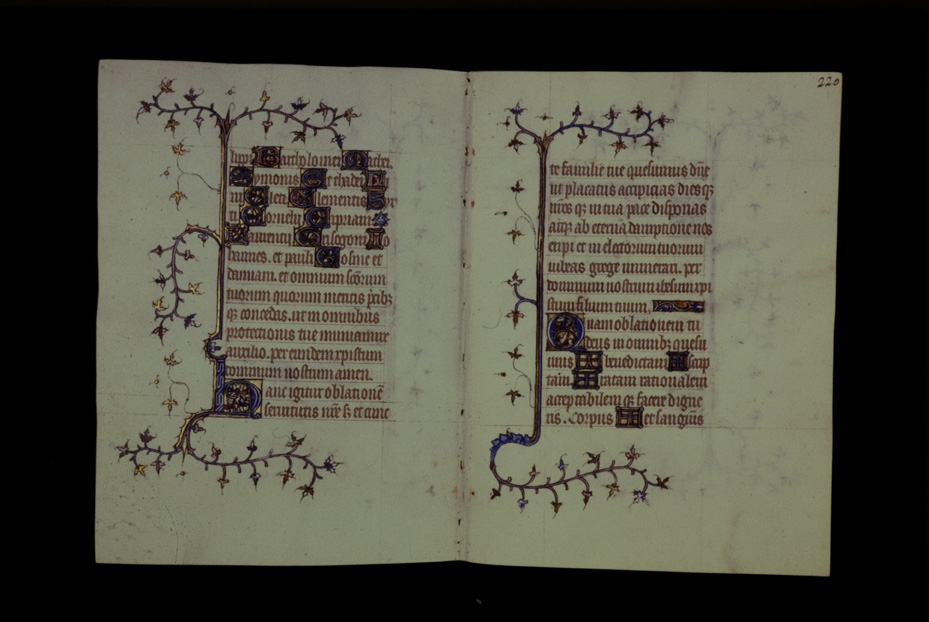 lippi Bartholomei Mathei.
Symonis Et thadei Li
ni Cleti Clementis Syx
ti Cornelii Cipriani
Laurencii Grisogoni Io
hannes. et pauli Cosme et
damiani. et omnium scõrum
tuorum quorum meritis p̃cibz
qz concedas. ut in omnibus
protectionis tue muniamur
auxilio. per eundem xpistum
dominum nostrum amen.
Hanc igitur oblationẽ
seruitutis nr̃e sz et cunc
220
te familie tue quesumus dñe
ut placatus accipias dies qz
nr̃os qz in tua pace disponas
atqz ab eterna dampnatione nos
eripi et in electorum tuorum
iubeas grege numerari. per
dominum nostrum ihesum xpi
stum filium tuum.
Quam oblationem tu
deus in omnibz quesu
mus benedictam ascrip
tam ratam rationabilem
acceptabilem qz facere digne
ris. Corpus et sanguis